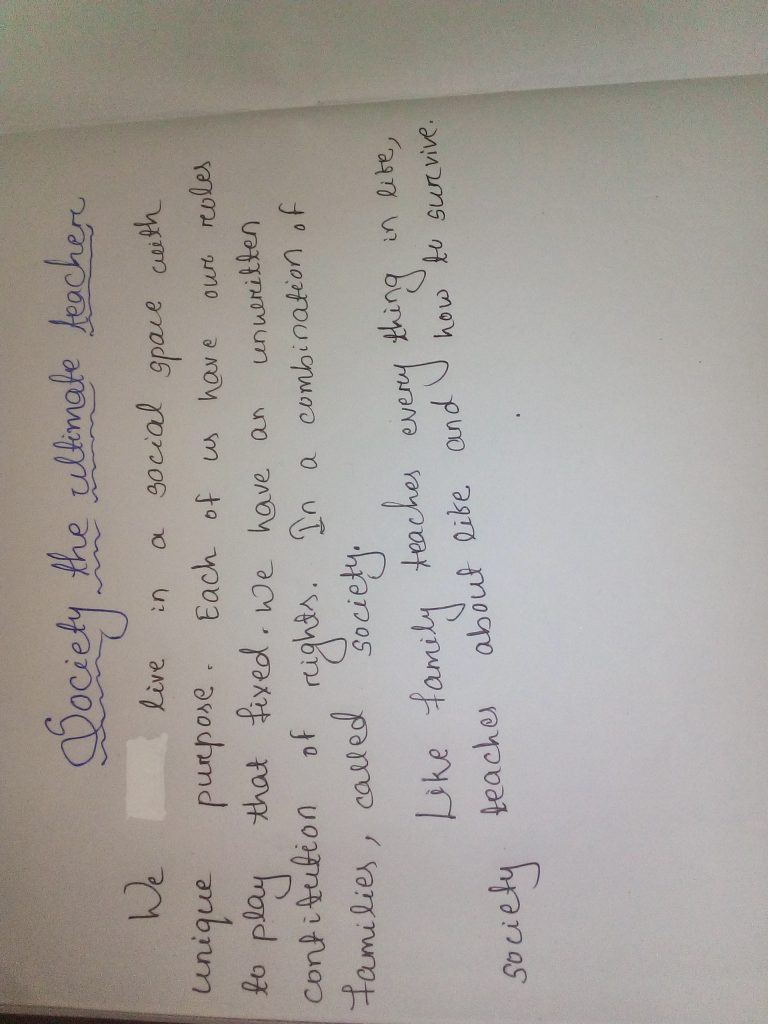 Society the ultimate teacher
We live in a social space with
unique purpose. Each of us have our roles
to play that fixed. We have an unwritten
contitution of rights. In a combination of
families, called society.
Like family teaches every thing in life,
society teaches about life and how to survive.